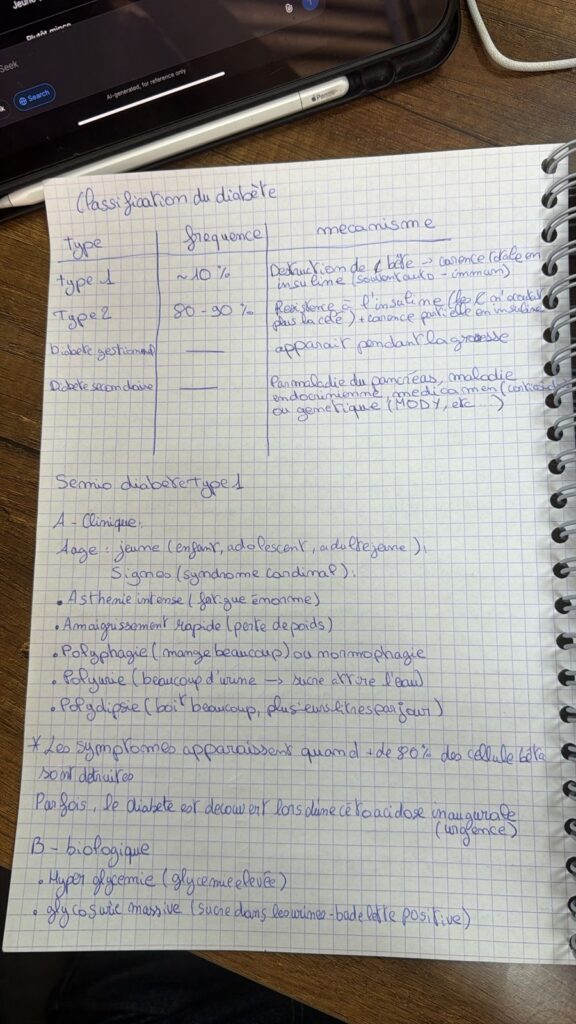 Seek
Search
AI-generated, for reference only
Pencil
Classification du diabète
type | frequence | mecanisme
type 1 | ~10 % | Destruction de bête → carence totale en
insuline (souvent auto-immun)
Type 2 | 80-90 % | Resistence à l'insuline (les
plus la clé) + carence partielle en insuline
Diabete gestionnel | — | apparait pendant la grossesse
Diabete secondaire | — | Par maladie du pancréas, maladie
endocrinienne, medicamen
ou genetique (MODY, etc...)
Semio diabete type 1
A - Clinique.
Aage : jeune (enfant, adolescent, adulte jeune).
Signes (syndrome cardinal):
• Asthenie intense (fatigue énorme)
• Amaigrissement rapide (perte de poids)
• Polyphagie (mange beaucoup) ou normophagie
• Polyurie (beaucoup d'urine → sucre attire l'eau)
• Polydipsie (boit beaucoup, plusieurs litres par jour)
* Les symptomes apparaissent quand + de 80% des cellule bêta
sont detruites
Parfois, le diabete est decouvert lors d'une cétoacidose inaugurale
(urgence)
B - biologique
• Hyper glycemie (glycemie elevée)
• glycosurie massive (sucre dans les urines - badelette positive)